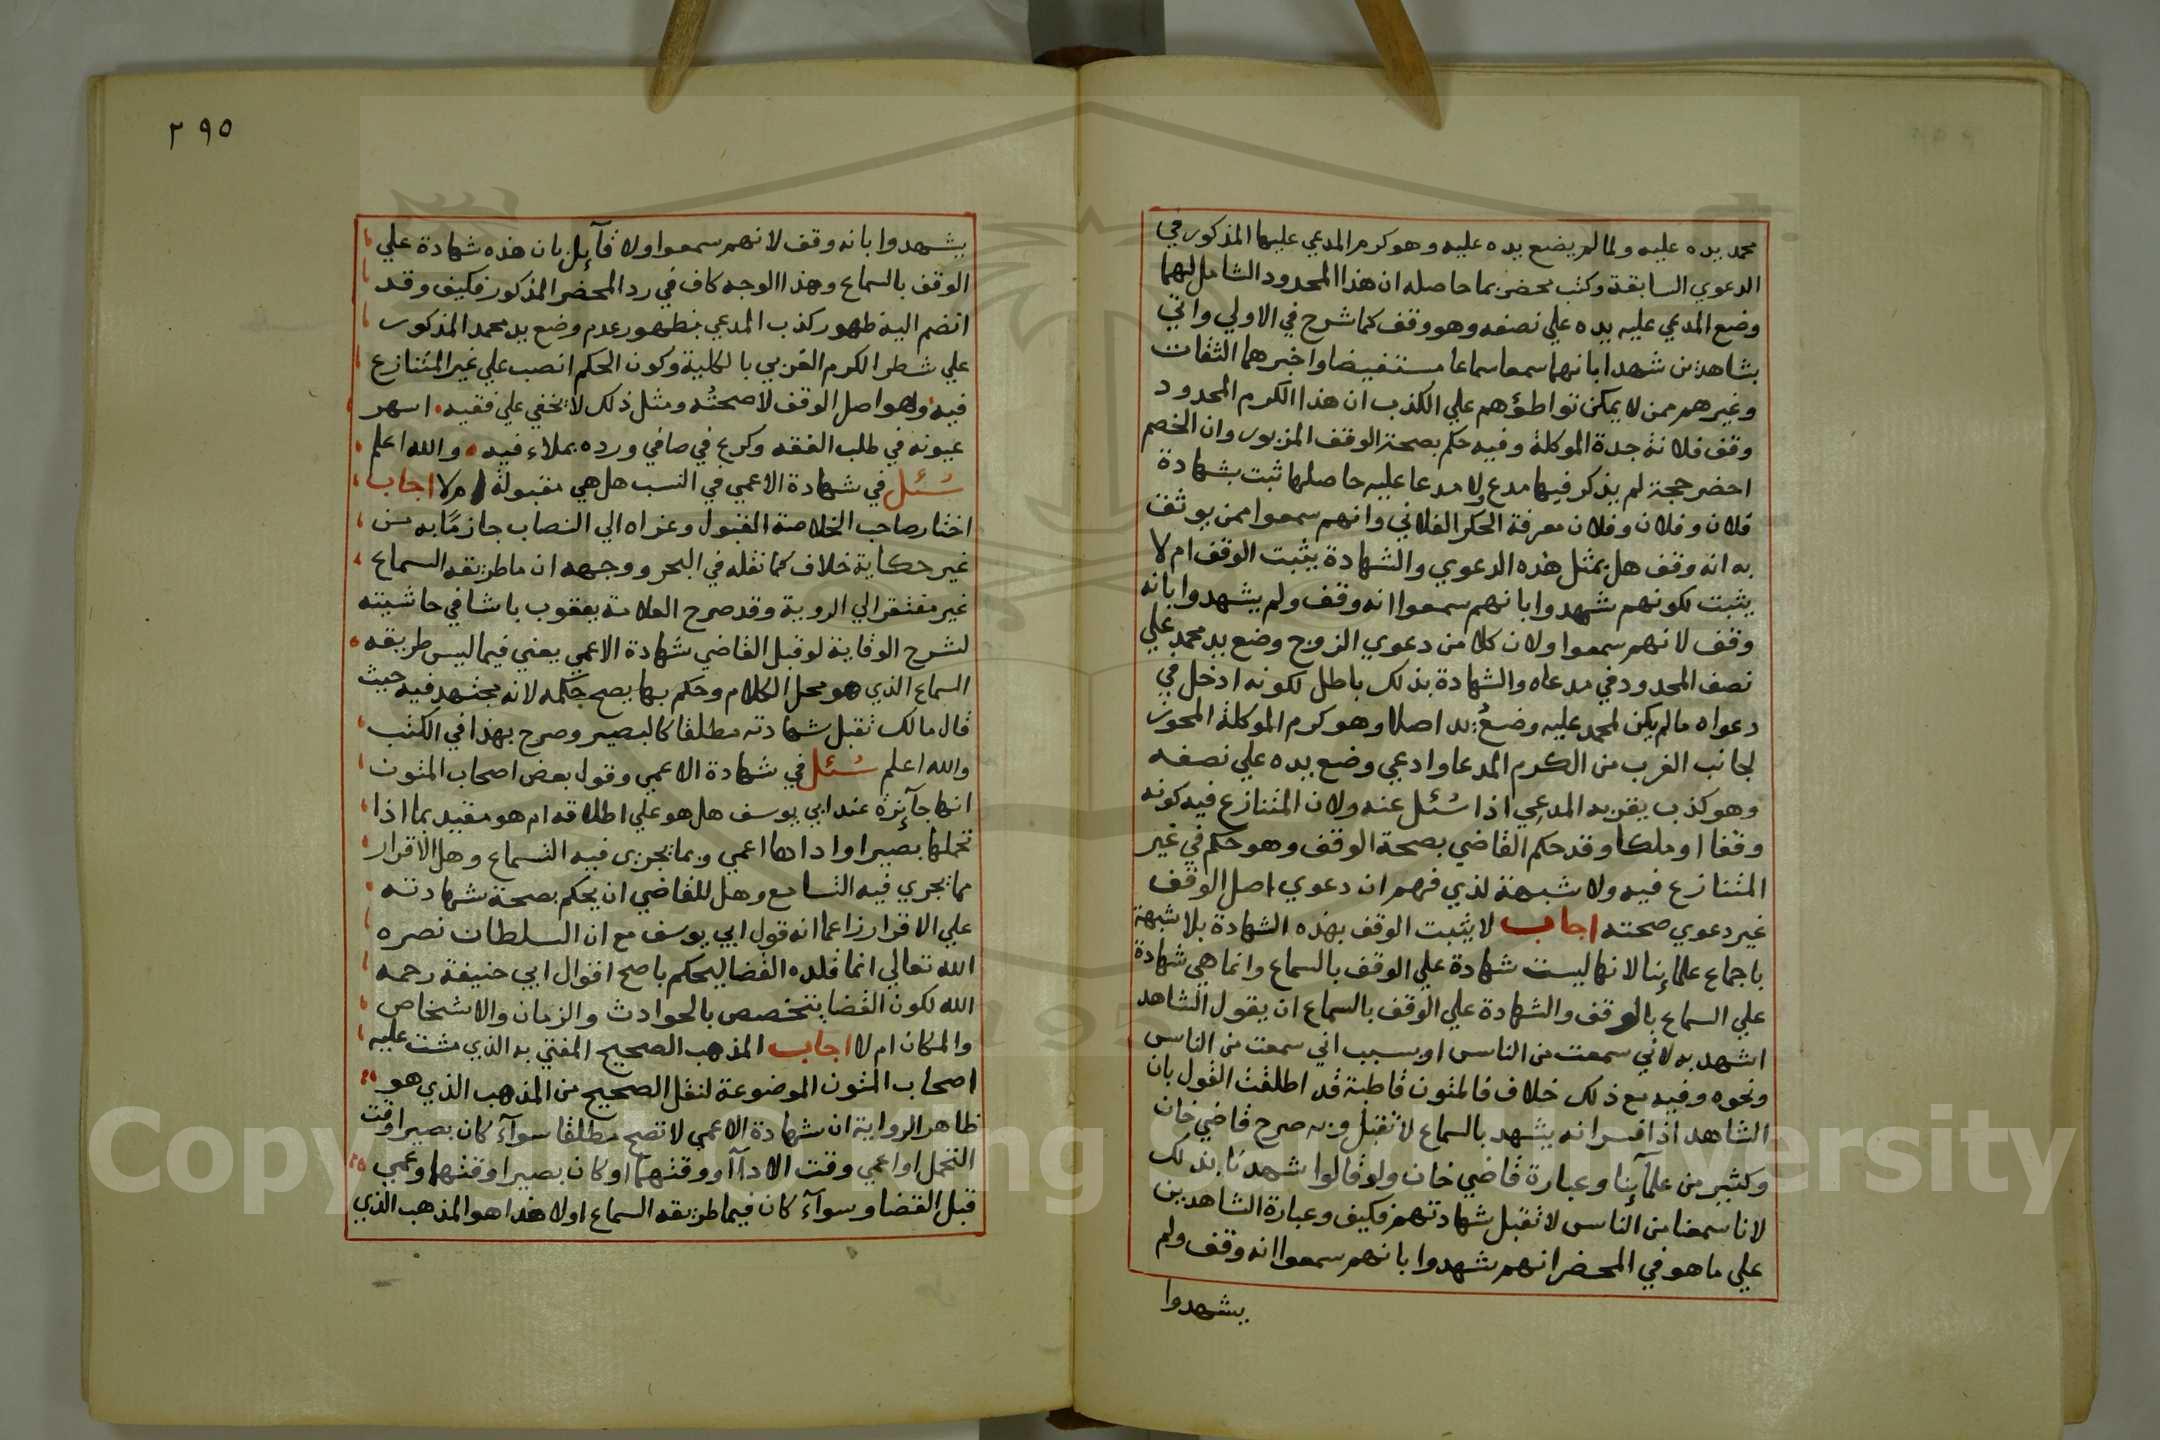 محمد يده عليه ولما لم يضع يده عليه وهو كرم المدعي عليها المذكور في
الدعوي السابقة وكتب محضر بما حاصله ان هذا المحدود الشامل لهما
وضع المدعي عليه يده علي نصفه وهو وقف كما شرح في الاولي واتي
بشاهدين شهدا بانهما سمعا سماعا مستفيضا واخبرهما الثقات
وغيرهم ممن لا يمكن تواطؤهم علي الكذب ان هذا الكرم المحدود
وقف فلانة جدة الموكلة وفيه حكم بصحة الوقف المزبور وان الخصم
احضر حجة لم يذكر فيها مدع ولا مدعا عليه حاصلها ثبت بشهادة
فلان وفلان وفلان معرفة الحكر الفلاني وانهم سمعوا ممن يوثق
به انه وقف هل بمثل هذه الدعوي والشهادة يثبت الوقف ام لا
يثبت لكونهم شهدوا بانهم سمعوا انه وقف ولم يشهدوا بانه
وقف لانهم سمعوا ولان كلا من دعوي الزوج وضع يد محمد علي
نصف المحدود في مدعاه والشهادة بذلك باطل لكونه ادخل في
دعواه مالم يكن لمحمد عليه وضع يد اصلا وهو كرم الموكلة المحوز
لجانب الغرب من الكرم المدعا وادعي وضع يده علي نصفه
وهو كذب يقر به المدعي اذا سئل عنه ولان المتنازع فيه كونه
وقفا او ملكا وقد حكم القاضي بصحة الوقف وهو حكم في غير
المتنازع فيه ولا شبهة لذي فهم ان دعوي اصل الوقف
غير دعوي صحته اجاب لا يثبت الوقف بهذه الشهادة بلا شبهة
باجماع علمائنا لانها ليست شهادة علي الوقف بالسماع وانما هي شهادة
علي السماع بالوقف والشهادة علي الوقف بالسماع ان يقول الشاهد
اشهد به لاني سمعت من الناس او بسبب اني سمعت من الناس
ونحوه وفيه مع ذلك خلاف فالمتون قاطبة قد اطلقت القول بان
الشاهد اذا فسر انه يشهد بالسماع لا تقبل وبه صرح قاضي خان
وكثير من علمآئنا وعبارة قاضي خان ولو قالوا شهدنا بذلك
لانا سمعنا من الناس لا تقبل شهادتهم فكيف وعبارة الشاهدين
علي ما هو في المحضر انهم شهدوا بانهم سمعوا انه وقف ولم
يشهدوا
٢٩٥
يشهدوا بانه وقف لانهم سمعوا ولا قآئل بان هذه شهادة علي
الوقف بالسماع وهذا الوجه كاف في رد المحضر المذكور فكيف وقد
انضم اليه ظهور كذب المدعي بظهور عدم وضع يد محمد المذكور
علي شطر الكرم الغربي بالكلية وكون الحكم انصب علي غير المتنازع
فيه وهو اصل الوقف لا صحته ومثل ذلك لا يخفي علي فقيه اسهر
عيونه في طلب الفقه وكرع في صافي ورده بملاء فيه والله اعلم
سئل في شهادة الاعمي في النسب هل هي مقبولة ام لا اجاب
اختار صاحب الخلاصة القبول وعزاه الي النصاب جازما به من
غير حكاية خلاف كما نقله في البحر ووجهه ان ما طريقه السماع
غير مفتقر الي الروية وقد صرح العلامة يعقوب باشا في حاشيته
لشرح الوقاية لو قبل القاضي شهادة الاعمي يعني فيما ليس طريقه
السماع الذي هو محل الكلام وحكم بها يصح حكمه لانه مجتهد فيه حيث
قال مالك تقبل شهادته مطلقا كالبصير وصرح بهذا في الكتب
والله اعلم سئل في شهادة الاعمي وقول بعض اصحاب المتون
انها جآئزة عند ابي يوسف هل هو علي اطلاقه ام هو مقيد بما اذا
تحملها بصيرا واداها اعمي وبما يجري فيه التسماع وهل الاقرار
مما يجري فيه التسامع وهل للقاضي ان يحكم بصحة شهادته
علي الاقرار زاعما انه قول ابي يوسف مع ان السلطان نصره
الله تعالي انما قلده القضا ليحكم باصح اقوال ابي حنيفة رحمه
الله لكون القضا يتخصص بالحوادث والزمان والاشخاص
والمكان ام لا اجاب المذهب الصحيح المفتي به الذي مشت عليه
اصحاب المتون الموضوعة لنقل الصحيح من المذهب الذي هو
ظاهر الرواية ان شهادة الاعمي لا تصح مطلقا سوآء كان بصيرا وقت
التحمل او اعمي وقت الادآء او وقتهما او كان بصيرا وقتهما وعمي
قبل القضا وسوآء كان فيما طريقه السماع اولا هذا هو المذهب الذي
Copyright © King Saud University